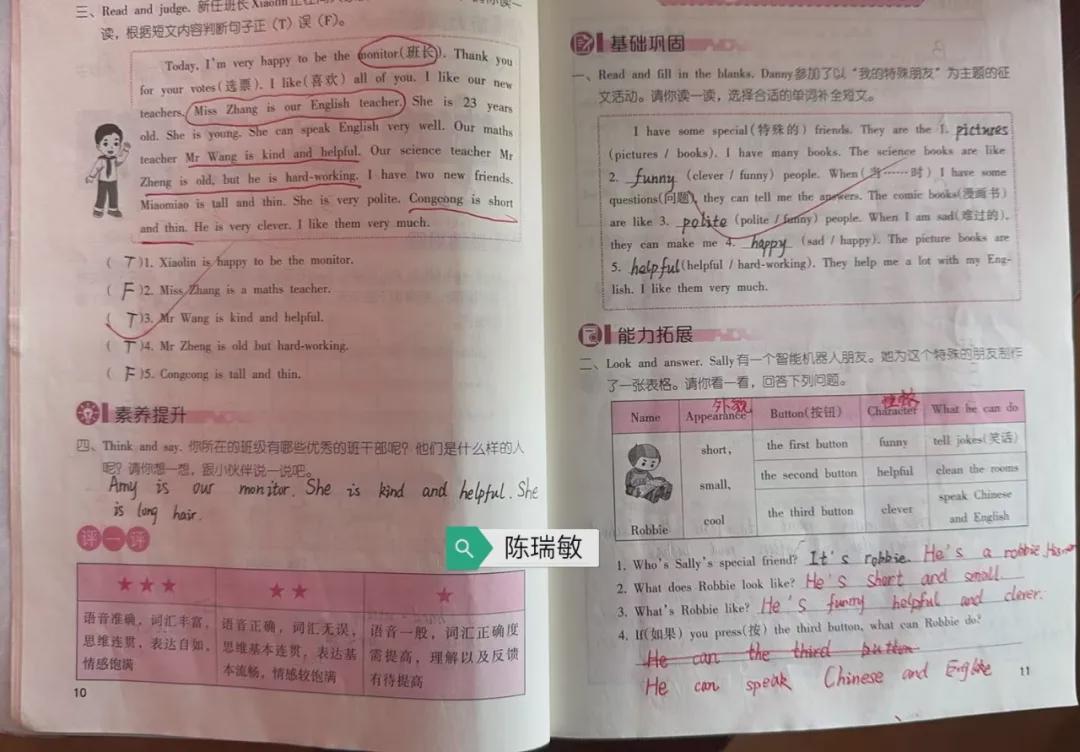 三、Read and judge. 新任班长Xiaolin
读，根据短文内容判断句子正（T）误（F）。
Today, I'm very happy to be the monitor(班长). Thank you
for your votes(选票). I like(喜欢) all of you. I like our new
teachers. Miss Zhang is our English teacher. She is 23 years
old. She is young. She can speak English very well. Our maths
teacher Mr Wang is kind and helpful. Our science teacher Mr
Zheng is old, but he is hard-working. I have two new friends.
Miaomiao is tall and thin. She is very polite. Congcong is short
and thin. He is very clever. I like them very much.
( T )1. Xiaolin is happy to be the monitor.
( F )2. Miss Zhang is a maths teacher.
( T )3. Mr Wang is kind and helpful.
( T )4. Mr Zheng is old but hard-working.
( F )5. Congcong is tall and thin.
素养提升
四、Think and say. 你所在的班级有哪些优秀的班干部呢？他们是什么样的人
呢？请你想一想，跟小伙伴说一说吧。
Amy is our monitor. She is kind and helpful. She
is long hair.
评一评
★★★ ★★ ★
语音准确，词汇丰富，
思维连贯，表达自如，
情感饱满
语音正确，词汇无误，
思维基本连贯，表达基
本流畅，情感较饱满
语音一般，词汇正确度
需提高，理解以及反馈
有待提高
10
陈瑞敏
基础巩固
一、Read and fill in the blanks. Danny参加了以“我的特殊朋友”为主题的征
文活动。请你读一读，选择合适的单词补全短文。
I have some special(特殊的) friends. They are the 1. pictures
(pictures / books). I have many books. The science books are like
2. funny (clever / funny) people. When(当……时) I have some
questions(问题), they can tell me the answers. The comic books(漫画书)
are like 3. polite (polite / funny) people. When I am sad(难过的),
they can make me 4. happy (sad / happy). The picture books are
5. helpful (helpful / hard-working). They help me a lot with my Eng-
lish. I like them very much.
能力拓展
二、Look and answer. Sally有一个智能机器人朋友。她为这个特殊的朋友制作
了一张表格。请你看一看，回答下列问题。
外貌 性格
Name Appearance Button(按钮) Character What he can do
Robbie
short,
small,
cool
the first button funny tell jokes(笑话)
the second button helpful clean the rooms
the third button clever speak Chinese
and English
1. Who's Sally's special friend? It's robbie. He's a robbie.
2. What does Robbie look like? He's short and small.
3. What's Robbie like? He's funny helpful and clever.
4. If(如果) you press(按) the third button, what can Robbie do?
He can the third button
He can speak Chinese and
11